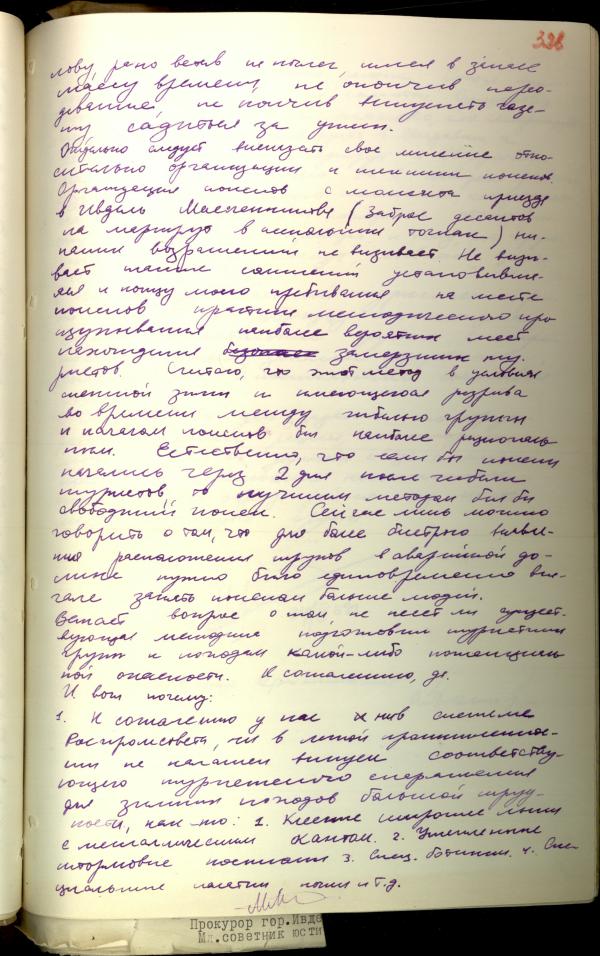 338
лову, рано встав не полез, имея в запасе
массу времени, не окончив перео-
девание, не кончив выпускать газе-
ту садиться за ужин.
Отдельно следует высказать свое мнение отно-
сительно организации и тактики поисков.
Организация поисков с момента приезда
в Ивдель Масленникова (заброс десантов
на маршрут в нескольких точках) ни-
каких возражений не вызывает. Не вызы-
вает также сомнений установивше-
яся к концу моего пребывания на месте
поисков практика методического про
щупывания наиболее вероятных мест
нахождения замерзших ту
ристов. Считаю, что этот метод в условиях
снежной зимы и имеющегося разрыва
во времени между гибелью группы
и началом поисков был наиболее рациональ
ным. Естественно, что если бы поиски
начались через 2 дня после гибели
туристов, то лучшим методом был бы
свободный поиск. Сейчас лишь можно
говорить о том, что для более быстрого выявле-
ния расположения трупов в аварийной до-
лине нужно было единовременно вна-
чале занять поиском больше людей.
Встает вопрос о том, не несет ли сущест-
вующая методика подготовки туристских
групп к походам какой-либо потенциаль
ной опасности. К сожалению, да.
И вот почему:
1. К сожалению у нас ни в системе
Роспромсовета, ни в легкой промышленнос-
ти не налажен выпуск соответству-
ющего туристского снаряжения
для зимних походов большой труд-
ности, как-то: 1. Клееные широкие лыжи
с металлическим кантом. 2. Утепленные
штормовые костюмы 3. Спец. ботинки. 4. Спе
циальные палатки, печки и т.д.
Прокурор гор.Ивде
Мл.советник юсти